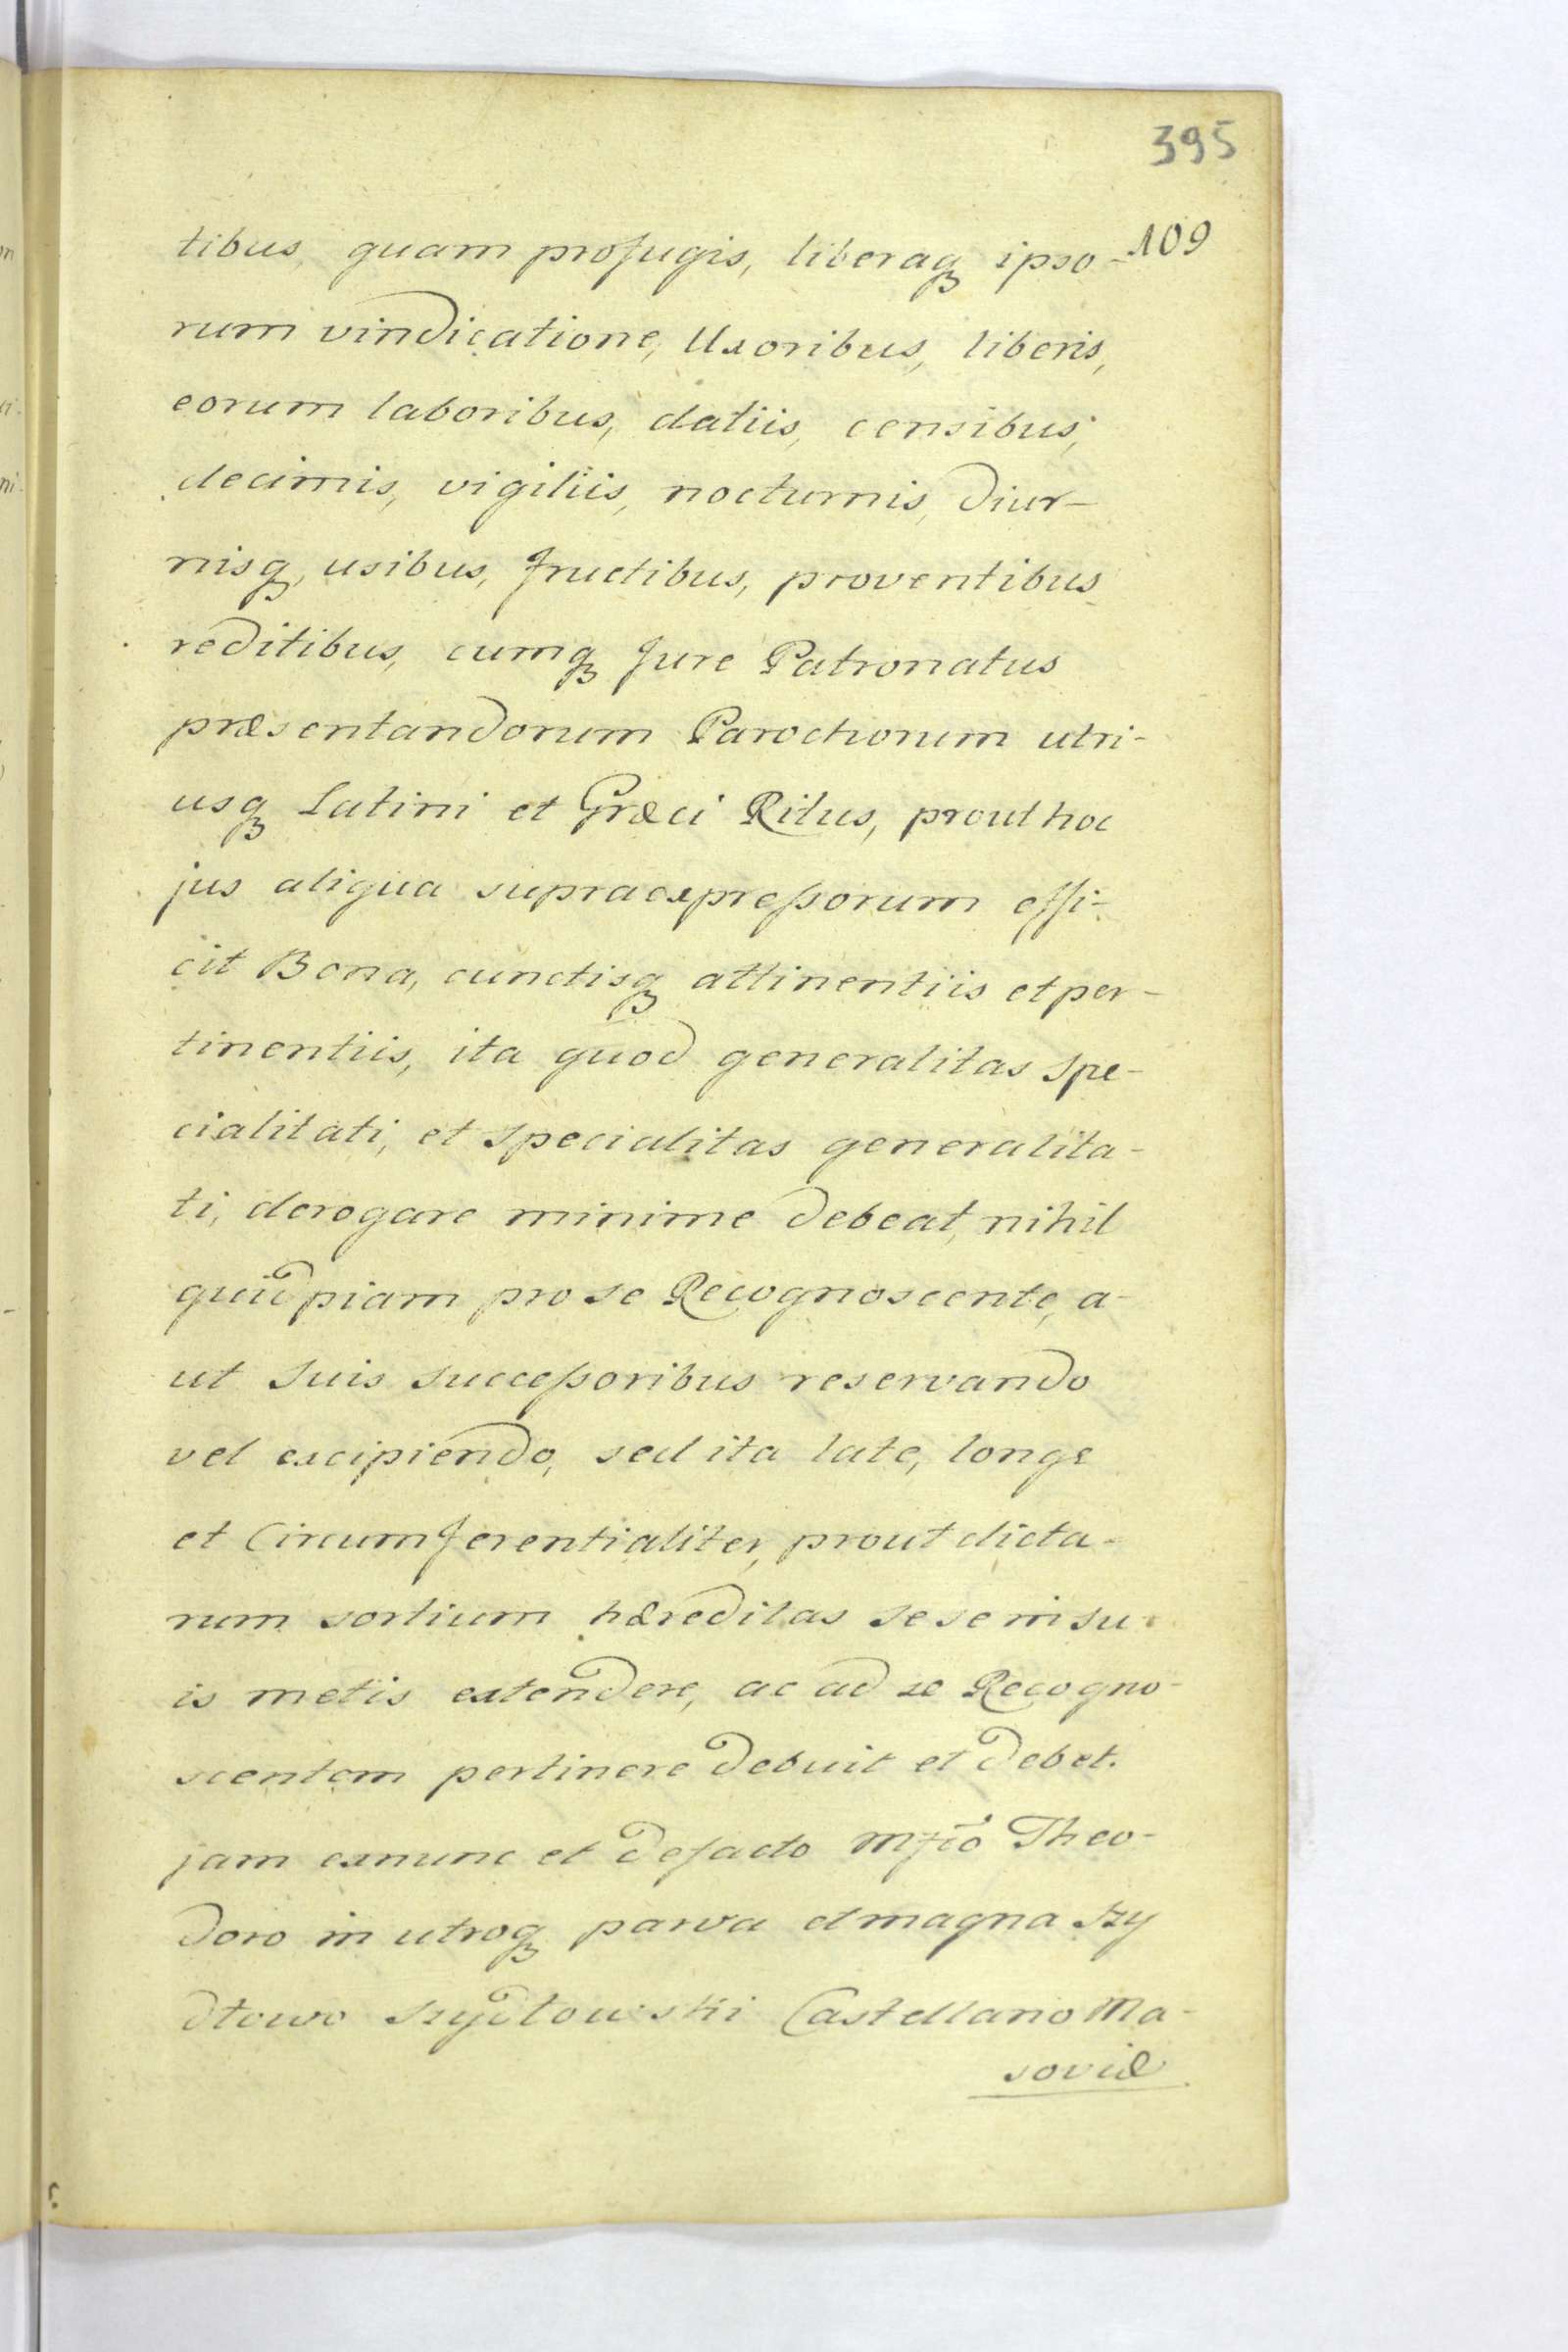 395
109
tibus, quam profugis, liberaqꝫ ipso-
rum vindicatione, Uxoribus, liberis,
eorum laboribus, datiis, censibus,
decimis, vigiliis, nocturnis, diur-
nisqꝫ, usibus, fructibus, proventibus
reditibus, cumqꝫ Jure Patronatus
præsentandorum Parochorum utri-
usqꝫ Latini et Græci Ritus, prout hoc
jus aliqua supraexpreſsorum effi-
cit Bona, cunctisqꝫ attinentiis et per-
tinentiis, ita quod generalitas spe-
cialitati, et specialitas generalita-
ti, derogare minime debeat, nihil
quidpiam pro se Recognoscente, a-
ut suis succeſsoribus reservando
vel excipiendo, sed ita late, longe
et Circumferentialiter, prout dicta-
rum sortium hæreditas sese in su-
is metis extendere, ac ad se Recogno-
scentem pertinere debuit et debet.
jam exnunc et defacto Mfico Theo-
doro in utroqꝫ parva et magna Szy
dłowo Szydłowski Castellano Ma-
soviæ